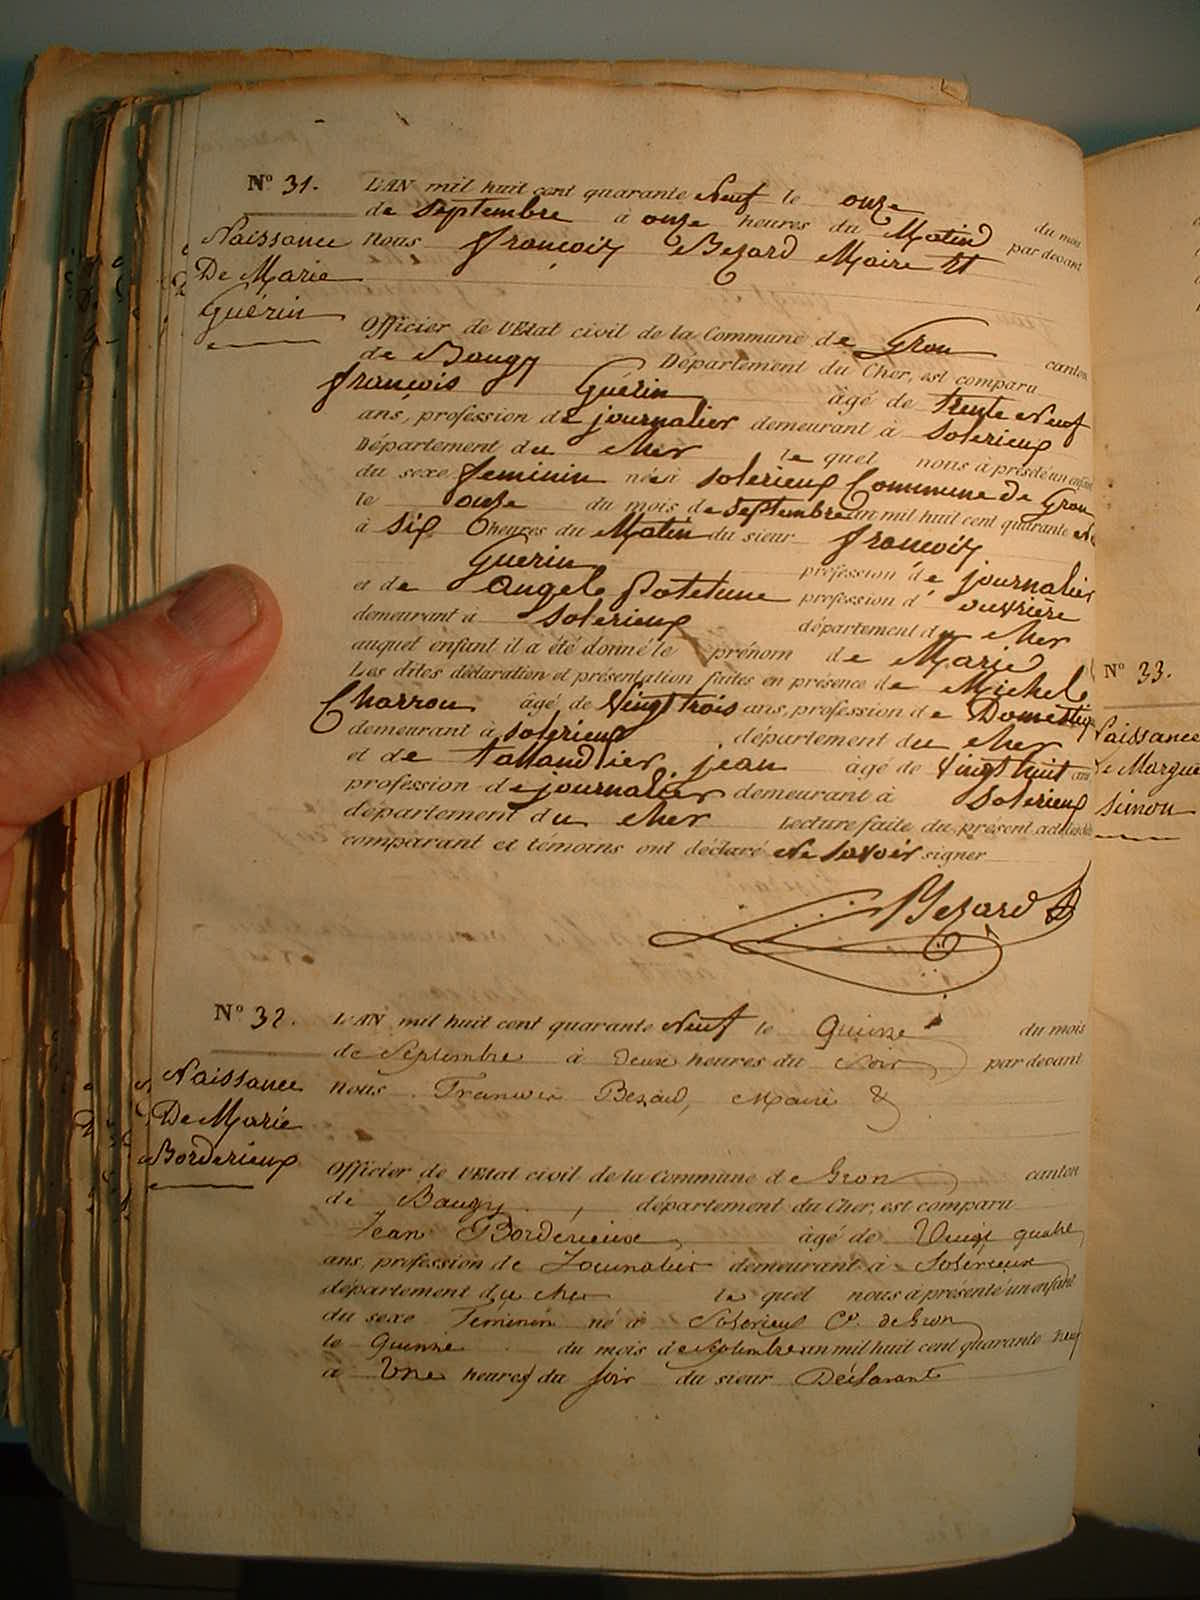 Nº 31.
Naissance
De Marie
Guérin
L'AN mil huit cent quarante Neuf le onze du mois
de Septembre à onze heures du Matin par devant
nous françois Bezard Maire Et
Officier de l'Etat civil de la Commune de Gron canton
de Baugy Département du Cher, est comparu
françois Guérin âgé de trente Neuf
ans, profession de journalier demeurant à Solerieux
Département du cher le quel nous à présenté un enfant
du sexe feminin né à Solerieux Commune de Gron
le onze du mois de Septembre an mil huit cent quarante Ne
à six heures du Matin du sieur françois
Guerin profession de journalier
et de Angele Patetune profession d' ouvrière
demeurant à Solerieux département du cher
auquel enfant il a été donné le prénom de Marie
Les dites déclaration et présentation faites en présence de Michel
Charron âgé de Vingt trois ans, profession de Domestiq
demeurant à Solerieux département du cher
et de tallandier jean âgé de Vingt huit ans
profession de journalier demeurant à Solerieux
département du cher Lecture faite du présent acte
comparant et témoins ont déclaré Ne Savoir signer
Bezard
Nº 32.
Naissance
De Marie
Borderieux
L'AN mil huit cent quarante Neuf le Quinze du mois
de Septembre à Deux heures du Soir par devant
nous François Bezard, Maire &
Officier de l'Etat civil de la Commune de Gron canton
de Baugy, département du Cher, est comparu
Jean Borderieux âgé de Vingt quatre
ans, profession de Journalier demeurant à Solerieux
département du cher le quel nous a présenté un enfant
du sexe Féminin né à Solerieux Cne de Gron
le Quinze du mois de Septembre an mil huit cent quarante neuf
à Une heure du Soir du sieur Déclarant
Nº 33.
Naissance
De Margue
Simon